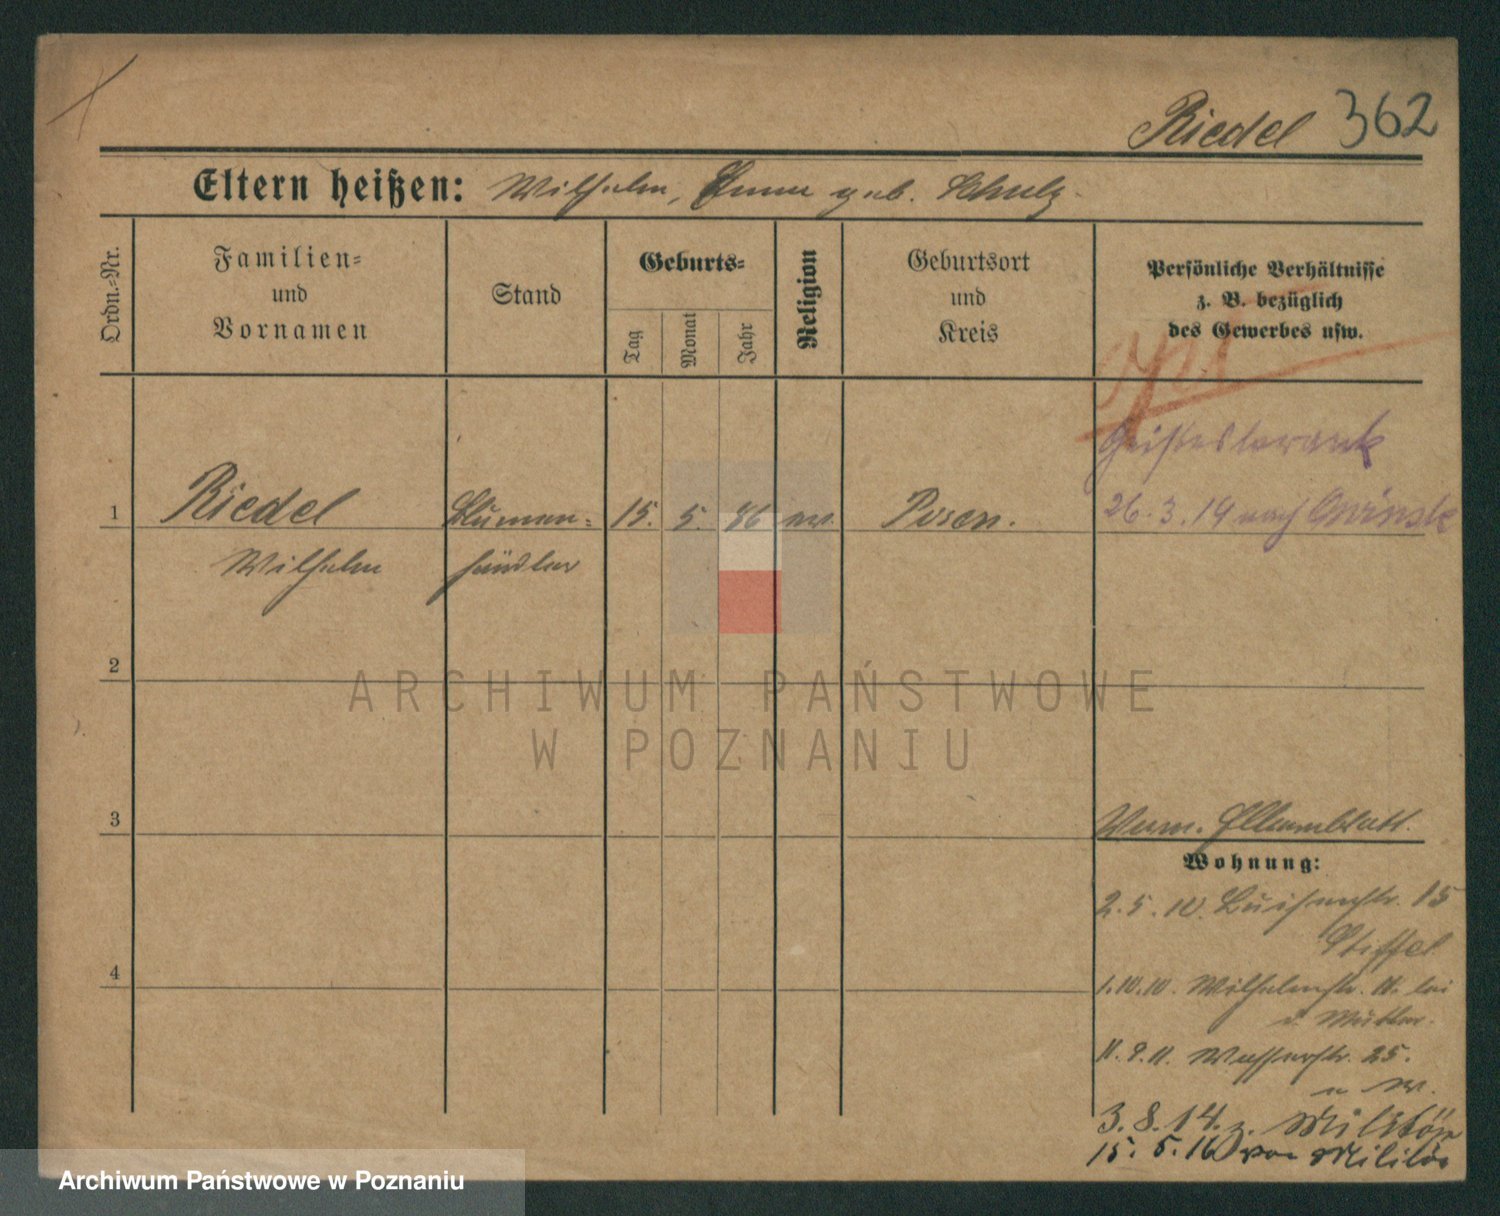 Riedel 362
Eltern heißen: Wilhelm, Emma geb. Schulz.
Ordn.-Nr.
Familien-
und
Vornamen
Stand
Geburts-
Tag
Monat
Jahr
Religion
Geburtsort
und
Kreis
Persönliche Verhältnisse
z. B. bezüglich
des Gewerbes usw.
Geisteskrank
1 Riedel Blumen- 15. 5. 86 ev. Posen. 26.3.19 nach
Wilhelm händler
2
3
Elternblatt.
Wohnung:
4
2.5.10. Luisenstr. 15
Stiffel
1.10.10. Wilhelmstr. 11. bei
d. Mutter.
11.9.11. Wasserstr. 25.
3.8.14. z. Militär
15.5.16 von Militär
ARCHIWUM PAŃSTWOWE
W POZNANIU
Archiwum Państwowe w Poznaniu